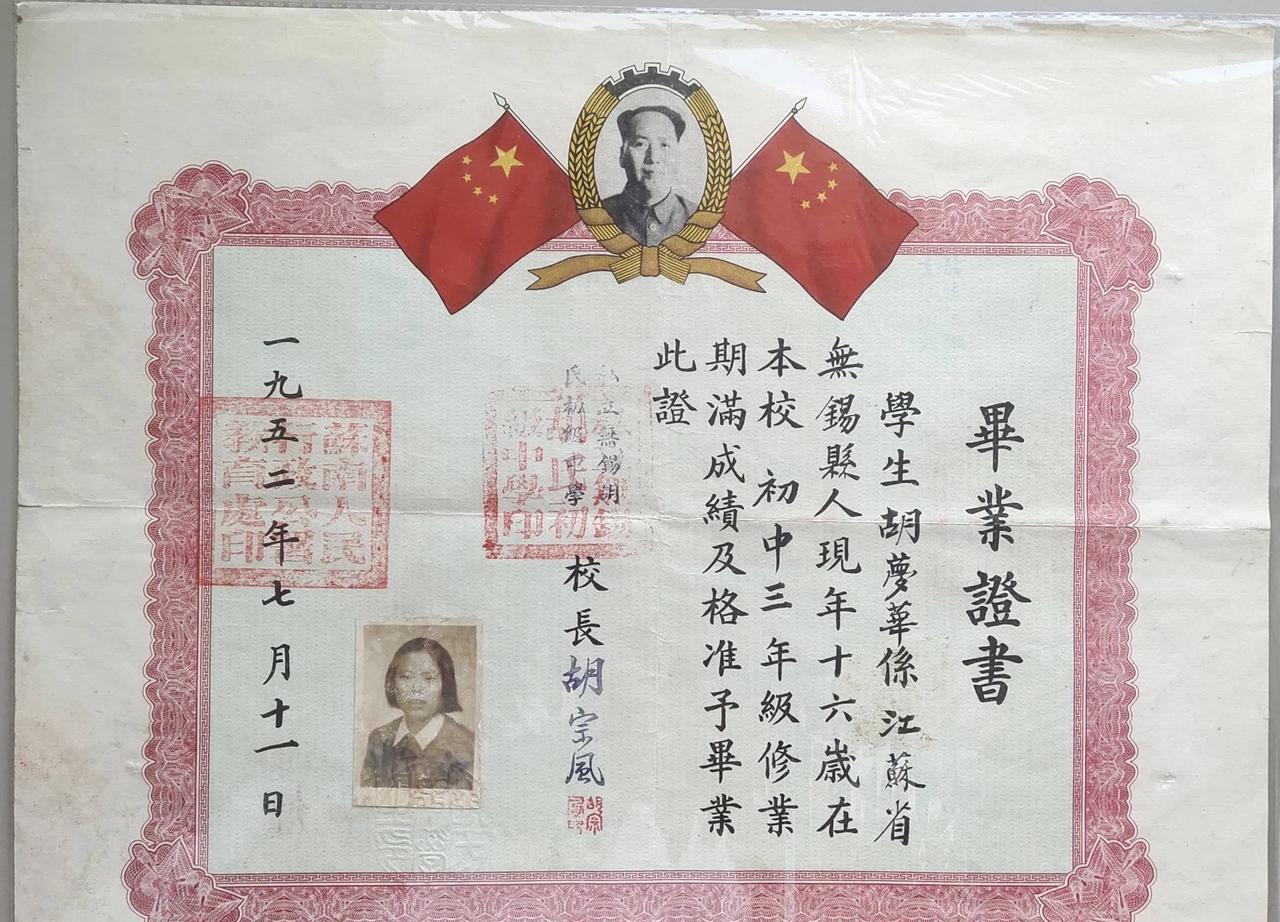 畢業證書
學生胡夢華係江蘇省
無錫縣人現年十六歲在
本校初中三年級修業
期滿成績及格准予畢業
此證
私立無錫胡
氏初級中學
校長胡宗風
一九五二年七月十一日
蘇南人民
行政公署
教育處印
級中學印